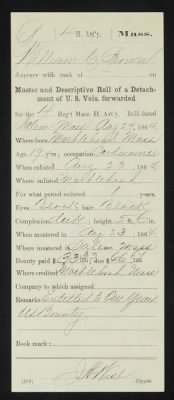 4 H. Art'y. Mass.
William C. Brown
Appears with rank of
Muster and Descriptive Roll of a Detach-
ment of U. S. Vols. forwarded
for the 4 Reg't Mass. H. Art'y. Roll dated
Salem Mass Aug 24, 1864.
Where born Marblehead, Mass
Age 19 y'rs; occupation
When enlisted Aug 23, 1864.
Where enlisted Marblehead
For what period enlisted 1 years.
Eyes Black; hair Black
Complexion Dark; height 5 ft. 6 in.
When mustered in Aug 23, 1864.
Where mustered in Salem Mass
Bounty paid $33 33/100; due $66 67/100
Where credited Marblehead Mass
Company to which assigned
Remarks: Entitled to One Years
US Bounty
Book mark: